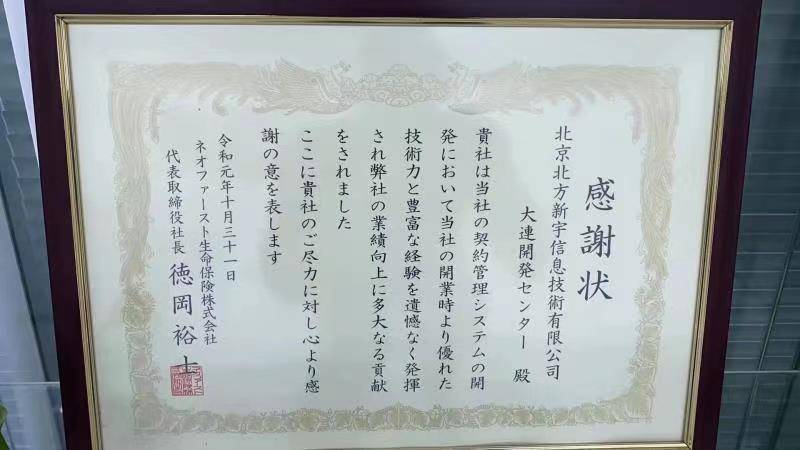 感謝状
北京北方新宇信息技術有限公司
大連開発センター 殿
貴社は当社の契約管理システムの開
発において当社の開業時より優れた
技術力と豊富な経験を遺憾なく発揮
され弊社の業績向上に多大なる貢献
をされました
ここに貴社のご尽力に対し心より感
謝の意を表します
令和元年十月三十一日
ネオファースト生命保険株式会社
代表取締役社長 徳岡裕士